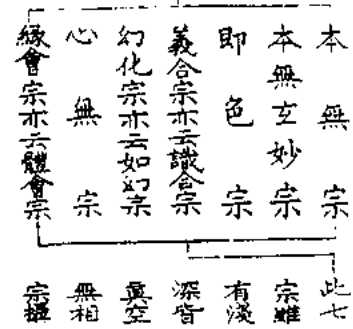 本無宗
本無玄妙宗
即色宗
義合宗亦云識合宗
幻化宗亦云如幻宗
心無宗
緣會宗亦云體會宗
此七
宗雖
有淺
深皆
真空
無相
宗攝